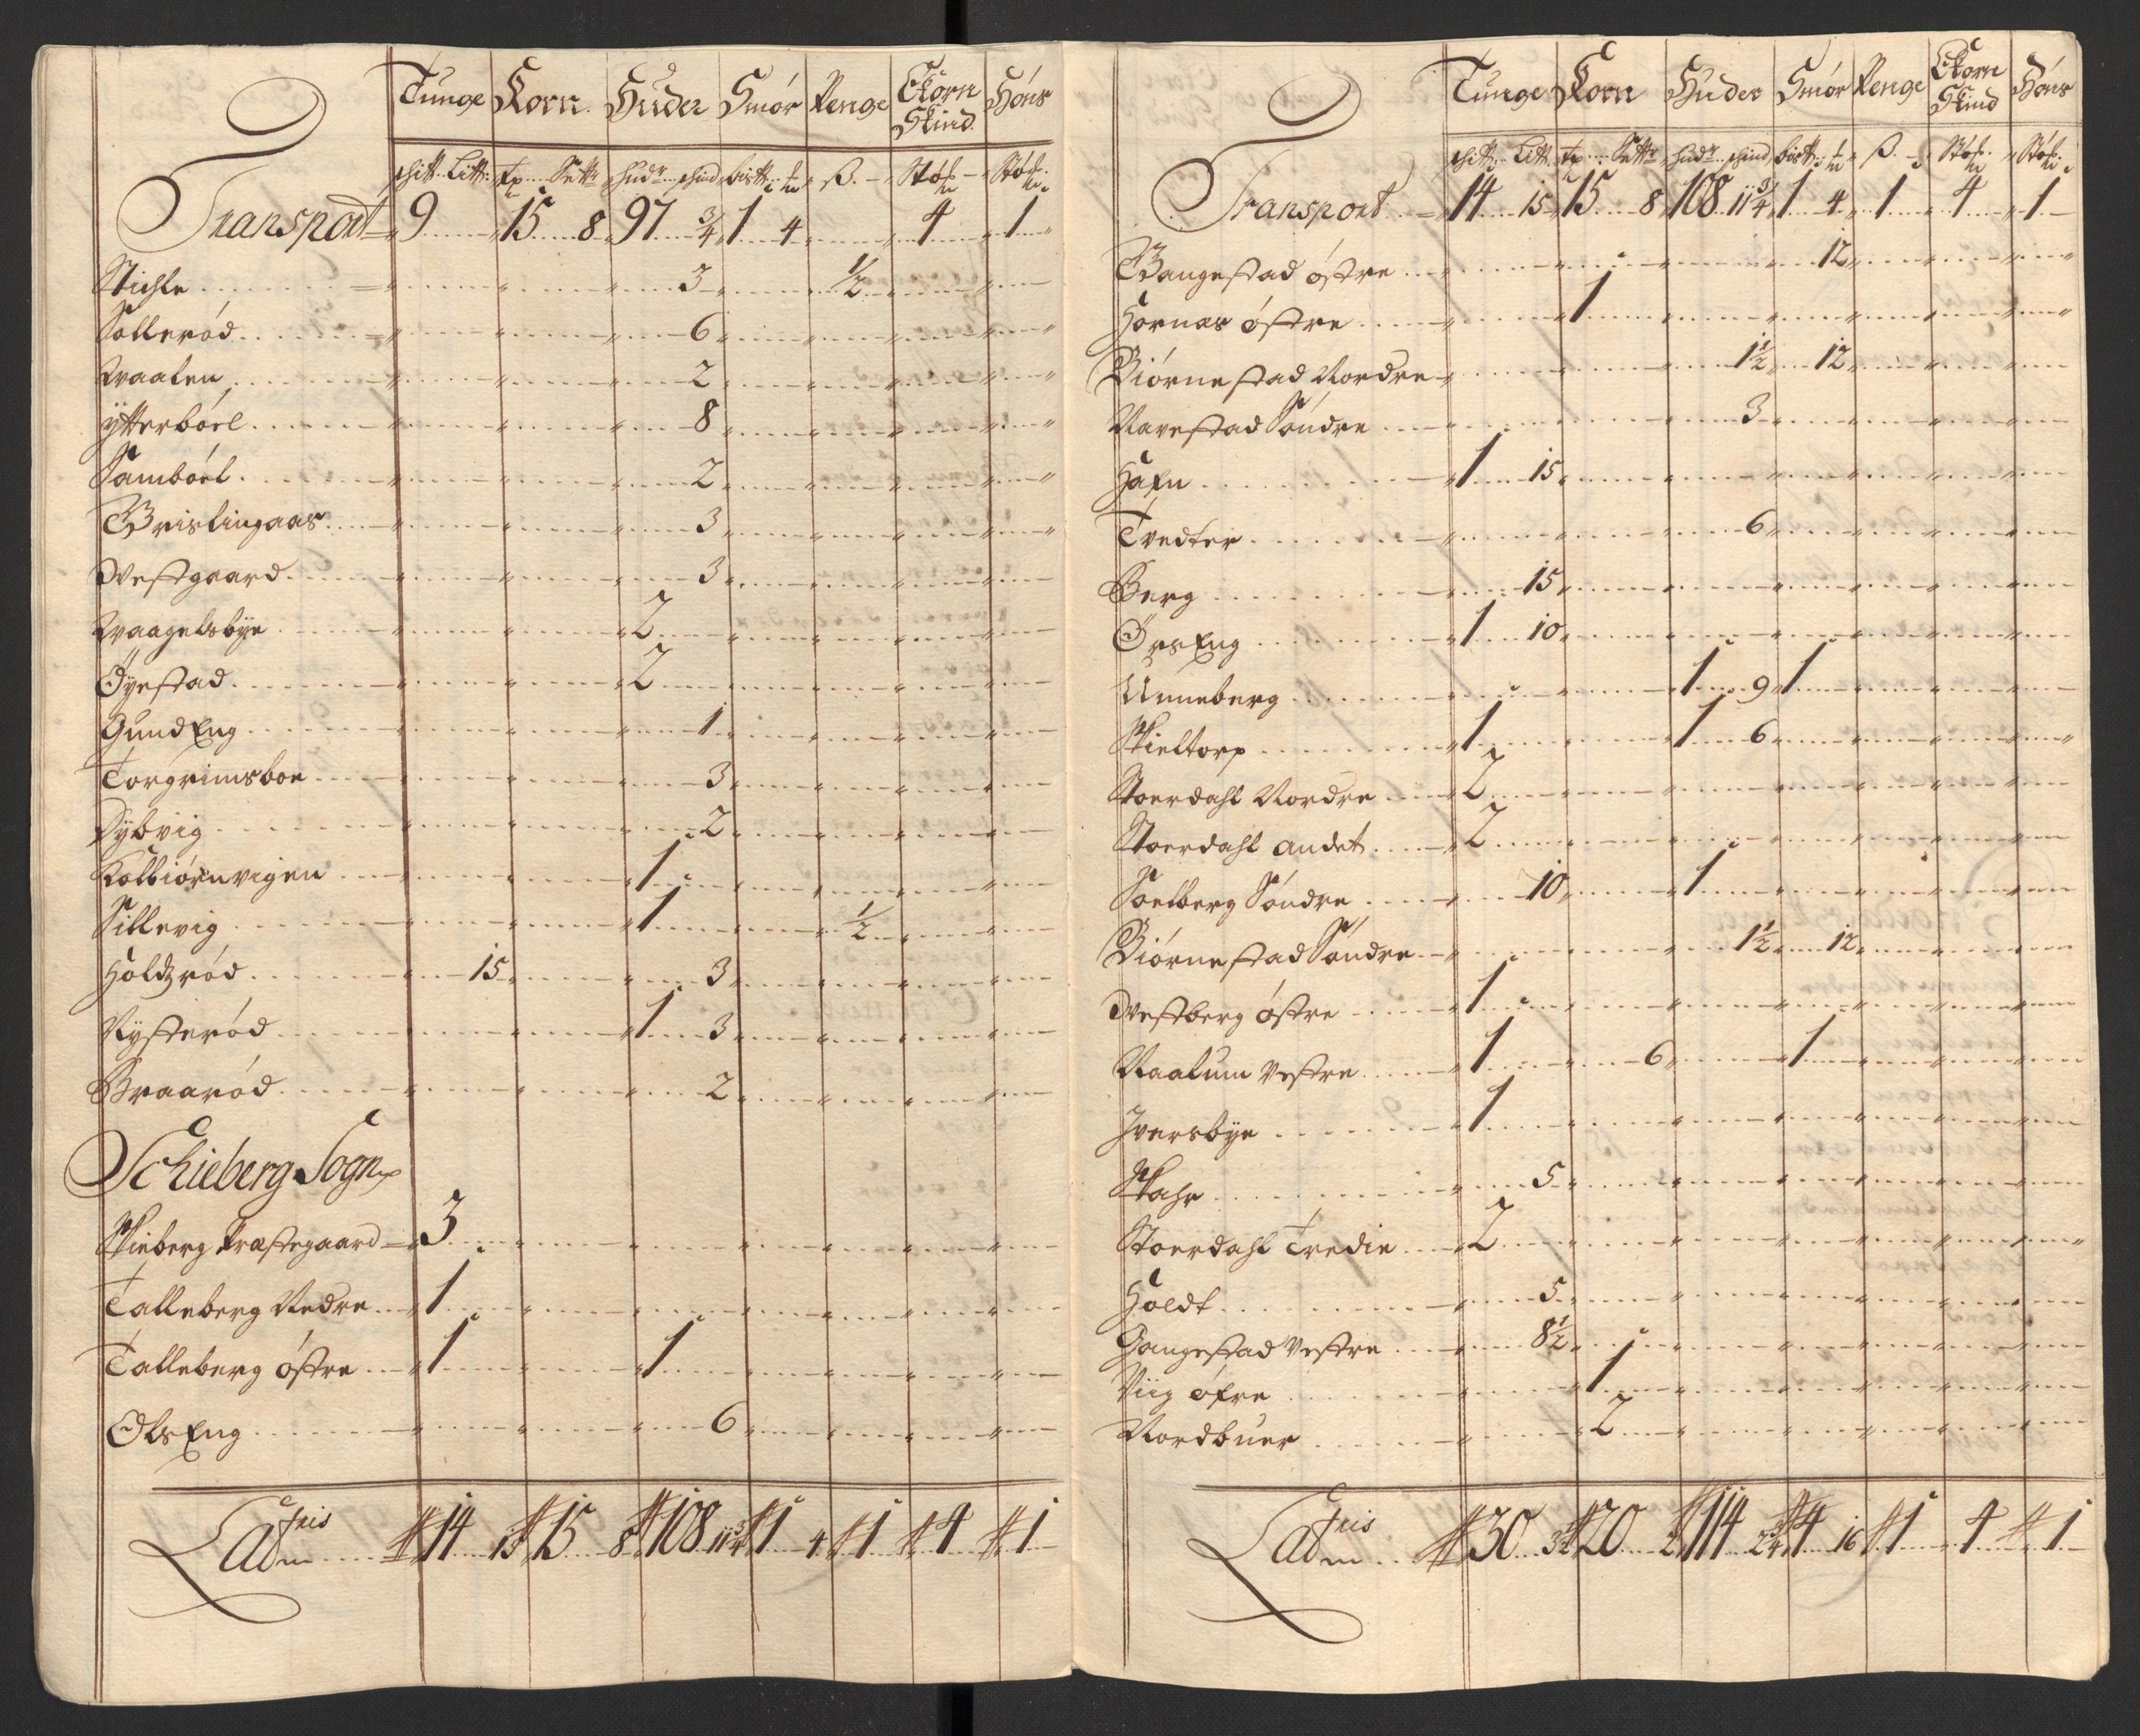 Tunge Korn Huder Smør Penge Ekorn Skind Høns
Transport 9 15 8 97 3/4 1 4 4 1
Stichle 3 1/2
Sollerød 6
Kvaalen 2
Ytterbøel 8
Sambøel 2
Brislingaas 3
Westgaard 3
Kvaagelsbye 2
Øyestad 2
GundEng 1
Torgrimsboe 3
Dybvig 2
Kolbiørnvigen 1
Sillevig 1 1/2
Holdzrød 15 3
Rysterød 1 3
Braarød 2
Schieberg Sogn
Skieberg Præstegaard 3
Talleberg Nedre 1
Talleberg østre 1 1
OlsEng 6
Latris 14 15 15 8 108 11 3/4 1 4 1 4 1
Tunge Korn Huder Smør Penge Ekorn Skind Høns
Transport 14 15 15 8 108 11 3/4 1 4 1 4 1
Bangestad østre 12
Hornas østre 1
Biørnestad Nordre 1 1/2 12
Navestad Søndre 3
Hafn 1 15
Tvedter 6
Berg 15
ØrsEng 1 10
Unneberg 1 9 1
Skieltorp 1 1 6
Stoerdahl Nordre 2
Stoerdahl andet 2
Soelberg Søndre 10 1
Biørnestad Søndre 1 1/2 12
Westberg østre 1
Naalum Vestre 1 6 1
Iversbye 1
Skahr 5
Stoerdahl Tredie 2
Holdt 5
Gangestad Vestre 8 1/2
Viig øfre 1
Nordbuer 2
Latris 30 3 1/2 20 2 114 2 3/4 4 16 1 4 1